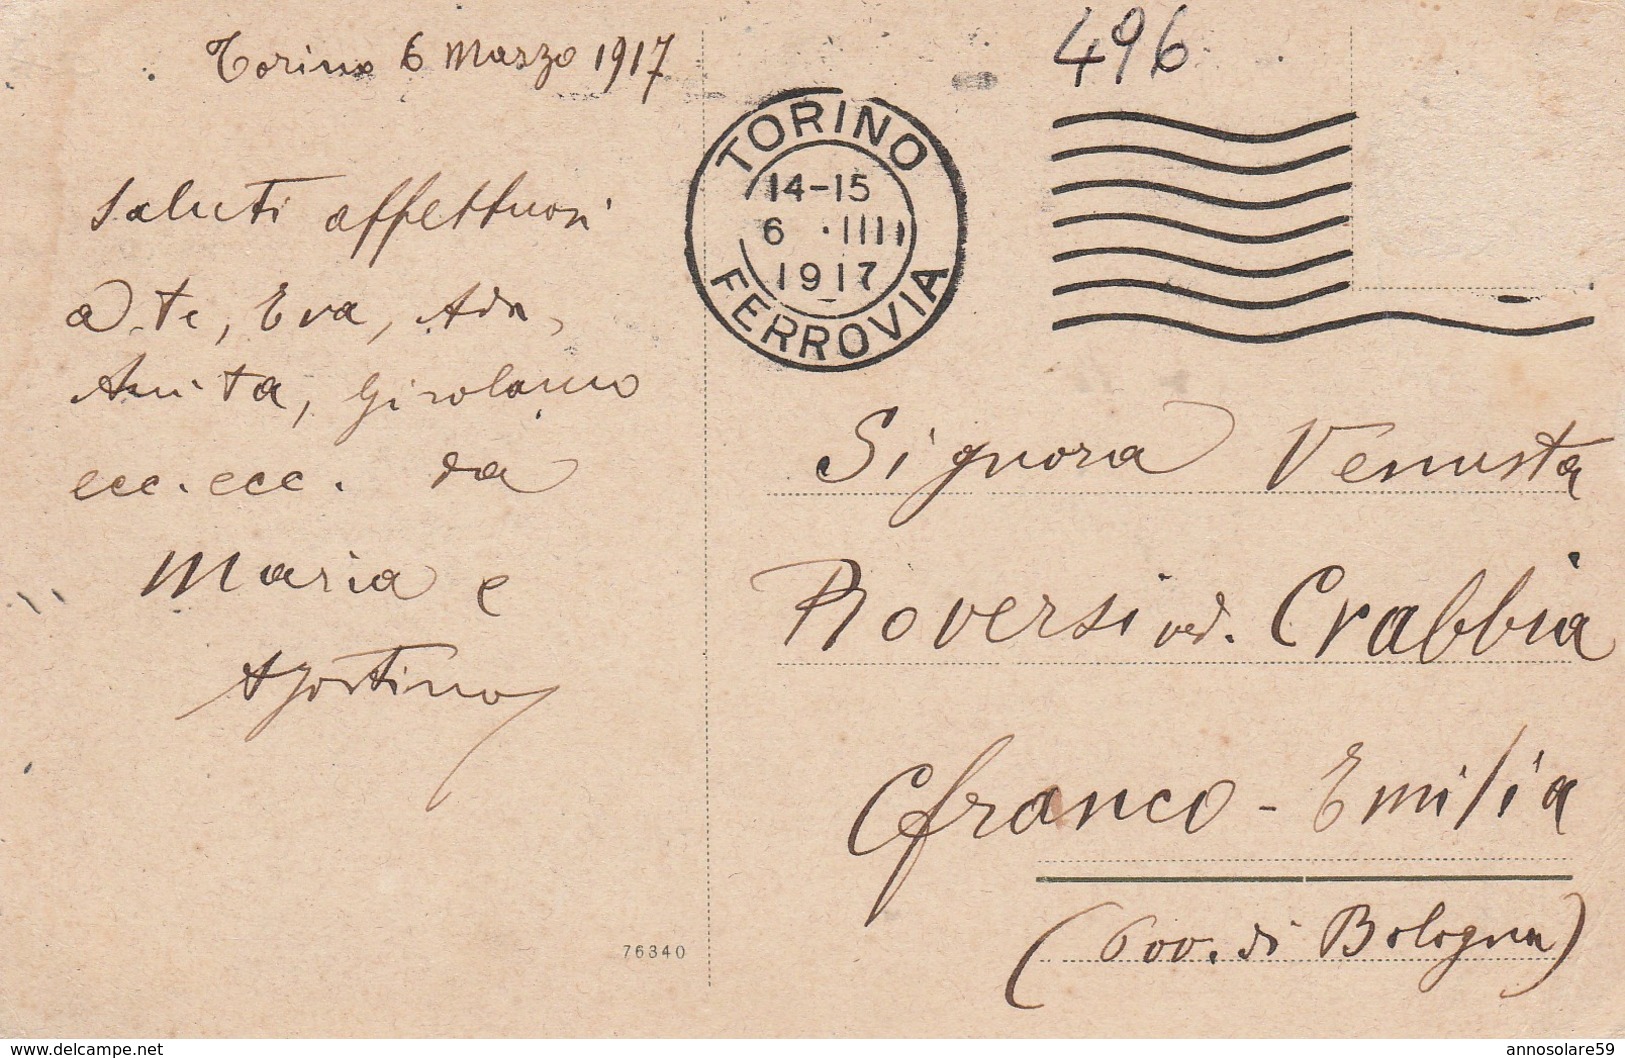 Torino 6 Marzo 1917
496
TORINO
14-15
6 · IIII
1917
FERROVIA
Saluti affettuosi
a te, Eva, Ada,
Anita, Girolamo
ecc. ecc. da
Maria e
Agostino
Signora Venusta
Roversi ved. Crabbia
Cfranco - Emilia
(Prov. di Bologna)
76340
www.delcampe.net
annosolare59